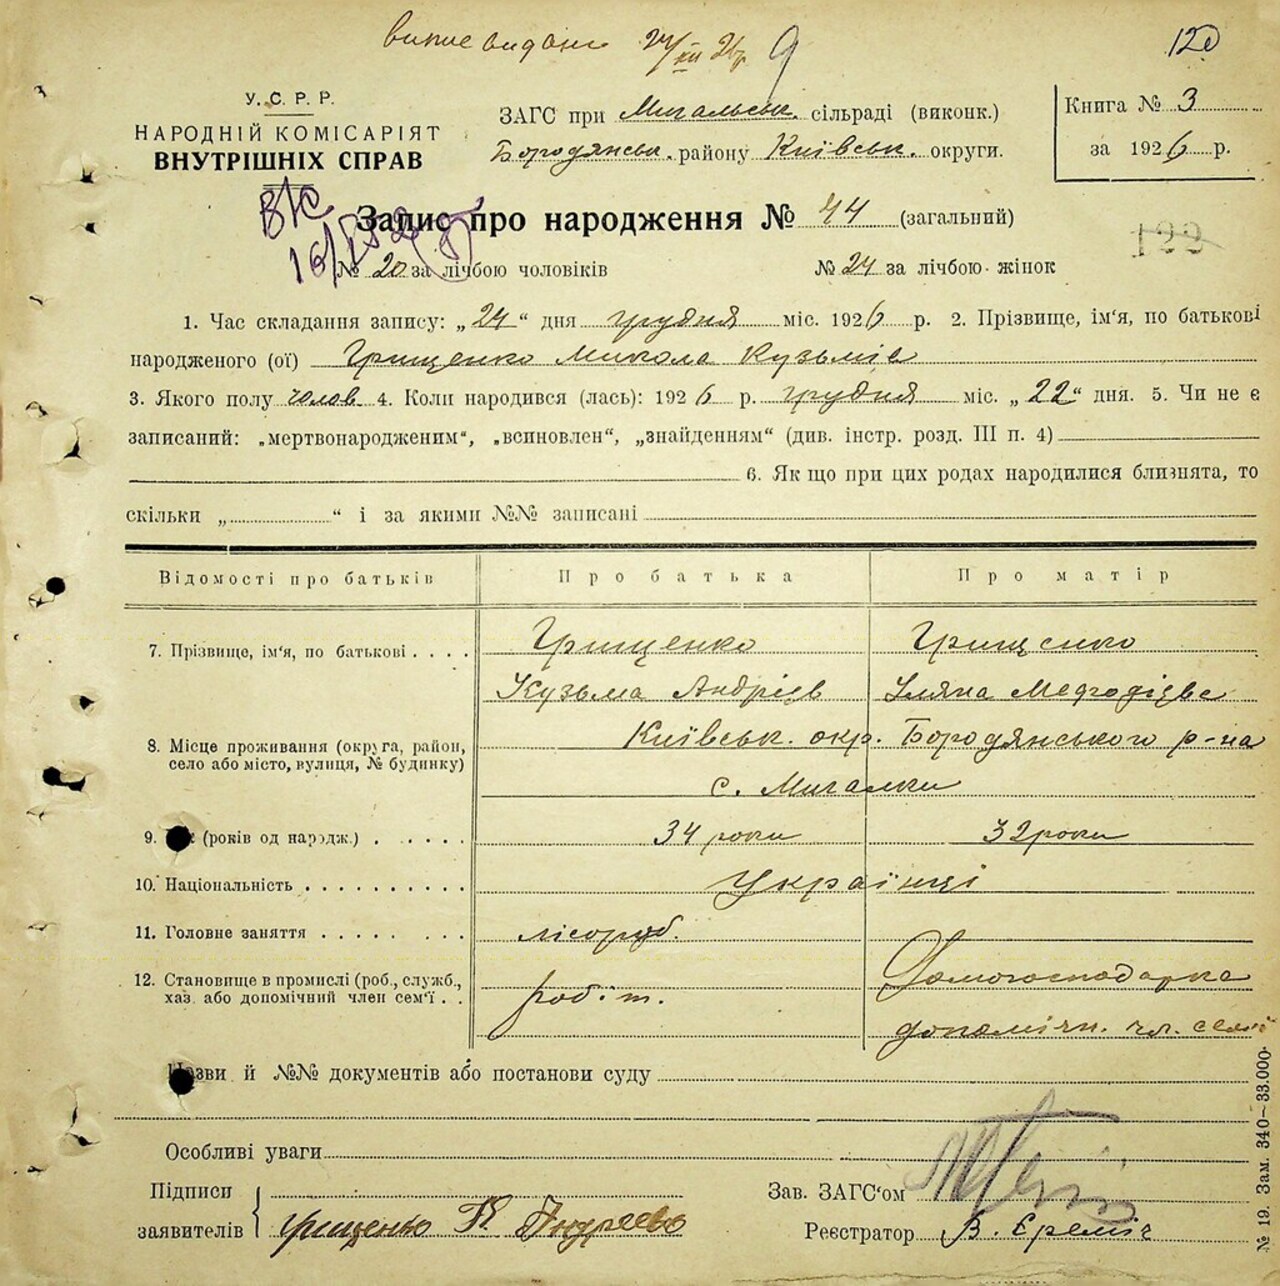 випис видано 24/XII 26р 9
120
У. С. Р. Р.
НАРОДНІЙ КОМІСАРІЯТ
ВНУТРІШНІХ СПРАВ
ЗАГС при Мигальськ. сільраді (виконк.)
Бородянськ. району Київськ. округи.
Книга № 3
за 1926 р.
Запис про народження № 44 (загальний)
122
№ 20 за лічбою чоловіків № 24 за лічбою жінок
1. Час складання запису: „24“ дня грудня міс. 1926 р. 2. Прізвище, ім'я, по батькові
народженого (ої) Грищенко Микола Кузьмів
3. Якого полу чолов. 4. Коли народився (лась): 1926 р. грудня міс. „22“ дня. 5. Чи не є
записаний: „мертвонародженим“, „всиновлен“, „знайденням“ (див. інстр. розд. III п. 4)
6. Як що при цих родах народилися близнята, то
скільки „ “ і за якими №№ записані
Відомості про батьків Про батька Про матір
7. Прізвище, ім'я, по батькові . . . . Грищенко Грищенко
Кузьма Андрієв Уляна Мефодієва
8. Місце проживання (округа, район, Київськ. окр. Бородянського р-на
село або місто, вулиця, № будинку) с. Мигалки
9. (років од народж.) . . . . . 34 роки 32 роки
10. Національність . . . . . . . . . . Українці
11. Головне заняття . . . . . . . . лісоруб.
12. Становище в промислі (роб., служб., робіт. Домогосподарка
хаз. або допомічний член сем'ї . . допомічн. чл. семї
Назви й №№ документів або постанови суду
Особливі уваги
Підписи
заявителів Грищенко К Андреевъ
Зав. ЗАГС'ом
Реєстратор В. Єреміч
№ 19. Зам. 340—33.000.